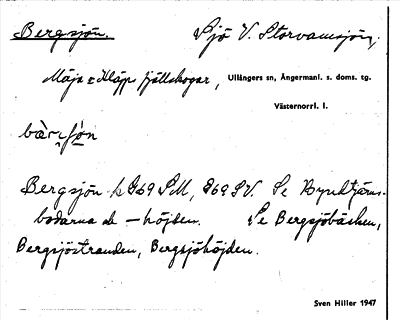 Bergsjön. Sjö V. Storvamsjön,
Mäja o Kläpp fjällskogar, Ullångers sn, Ångermanl. s. doms. tg.
Västernorrl. l.
Bergsjön k 869 SV. Se
bodarna o — höjden. Se Bergsjöbäcken,
Bergsjöstranden, Bergsjöhöjden.
Sven Hiller 1947